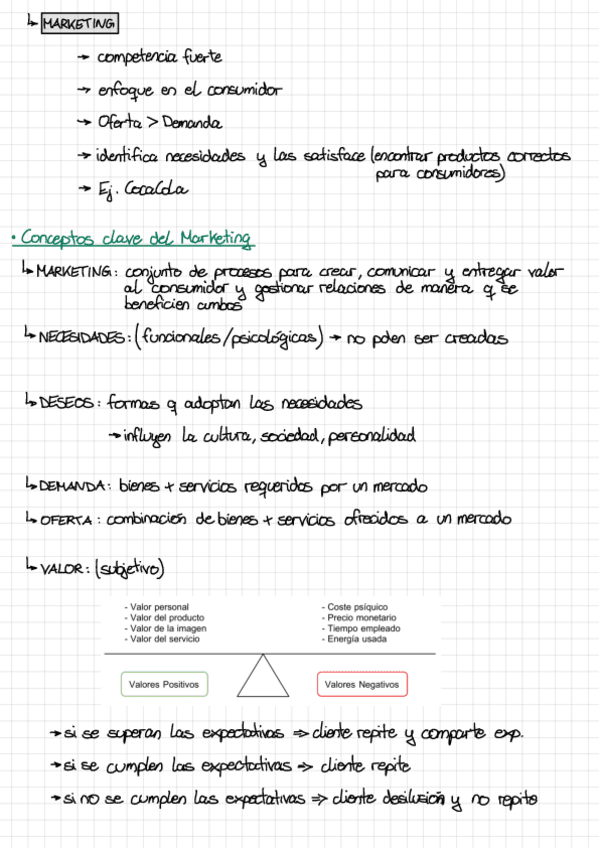 ↳ MARKETING
→ competencia fuerte
→ enfoque en el consumidor
→ Oferta > Demanda
→ identifica necesidades y las satisface (encontrar productos correctos
para consumidores)
→ Ej. CocaCola
• Conceptos clave del Marketing
↳ MARKETING: conjunto de procesos para crear, comunicar y entregar valor
al consumidor y gestionar relaciones de manera q se
beneficien ambos
↳ NECESIDADES: (funcionales/psicológicas) → no pden ser creadas
↳ DESEOS: formas q adoptan las necesidades
→ influyen la cultura, sociedad, personalidad
↳ DEMANDA: bienes + servicios requeridos por un mercado
↳ OFERTA: combinación de bienes + servicios ofrecidos a un mercado
↳ VALOR: (subjetivo)
- Valor personal
- Valor del producto
- Valor de la imagen
- Valor del servicio
- Coste psíquico
- Precio monetario
- Tiempo empleado
- Energía usada
Valores Positivos
Valores Negativos
→ si se superan las expectativas ⇒ cliente repite y comparte exp.
→ si se cumplen las expectativas ⇒ cliente repite
→ si no se cumplen las expectativas ⇒ cliente desilusión y no repite